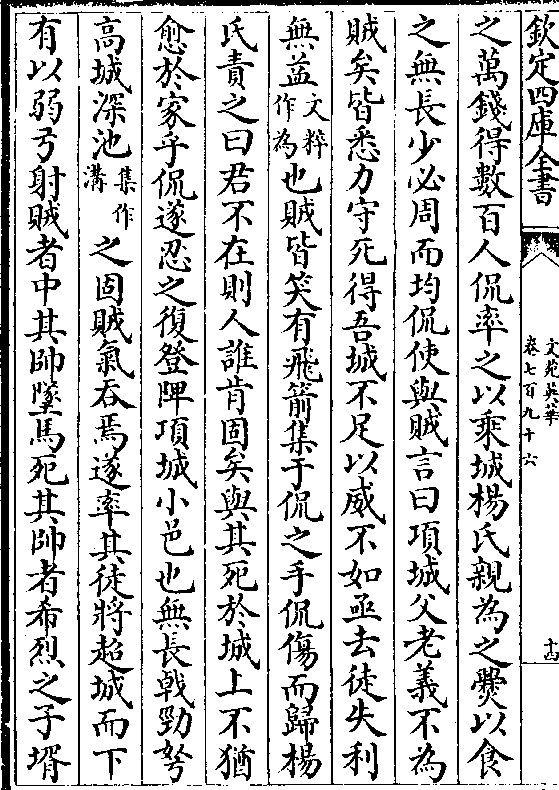 欽定四庫全書
文苑英華
卷七百九十六
十四
之萬錢得數百人侃率之以乘城楊氏親為之爨以食
之無長少必周而均侃使與賊言曰項城父老義不為
賊矣皆悉力守死得吾城不足以威不如亟去徒失利
無益文粹作為也賊皆笑有飛箭集于侃之手侃傷而歸楊
氏責之曰君不在則人誰肯固矣與其死於城上不猶
愈於家乎侃遂忍之復登陴項城小邑也無長㦸勁弩
高城深池集作溝之固賊氣吞焉遂率其徒將超城而下
有以弱弓射賊者中其帥墜馬死其帥者希烈之子壻